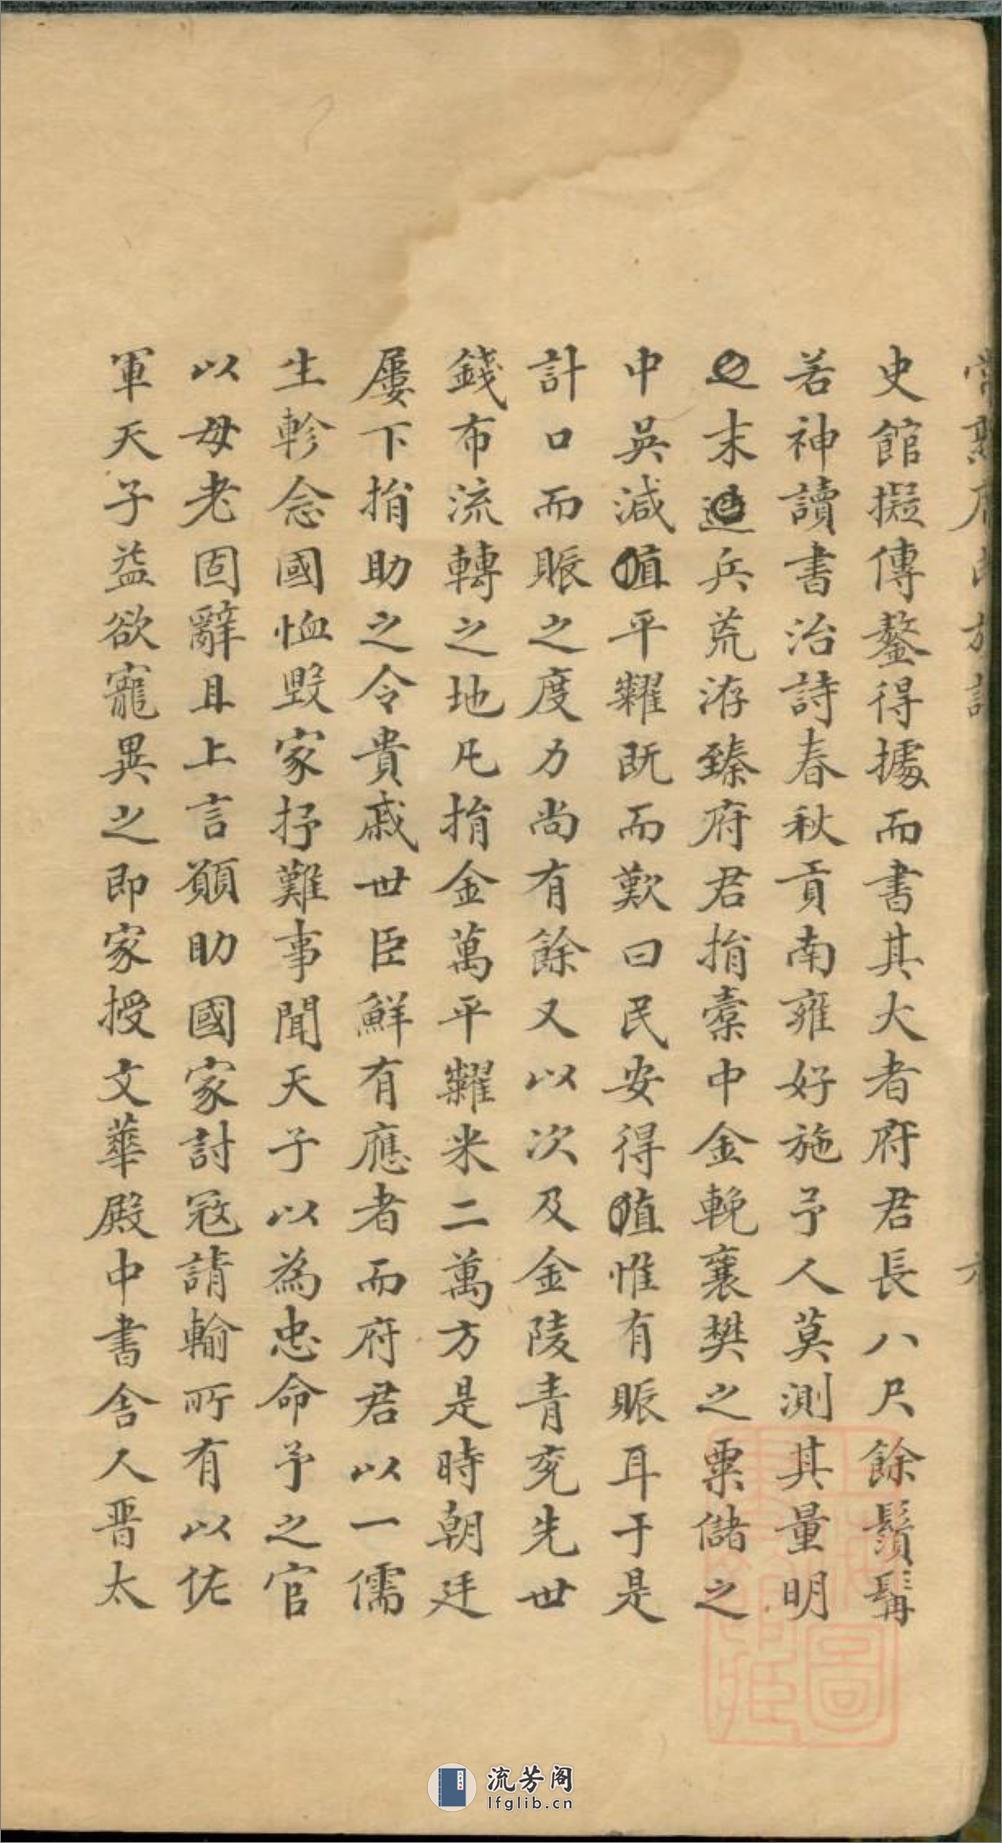 史館擬傳鏊得據而書其大者府君長八尺餘鬚髯
若神讀書治詩春秋貢南雍好施予人莫測其量明
末兵荒洊臻府君捐橐中金輓襄樊之粟儲之
中吳減值平糶既而歎曰民安得值惟有賑耳于是
計口而賑之度力尚有餘又以次及金陵青兗先世
錢布流轉之地凡捐金萬平糶米二萬方是時朝廷
屢下捐助之令貴戚世臣鮮有應者而府君以一儒
生軫念國恤毀家抒難事聞天子以為忠命予之官
以母老固辭且上言願助國家討寇請輸所有以佐
軍天子益欲寵異之即家授文華殿中書舍人晋太
流芳阁
lfglib.cn